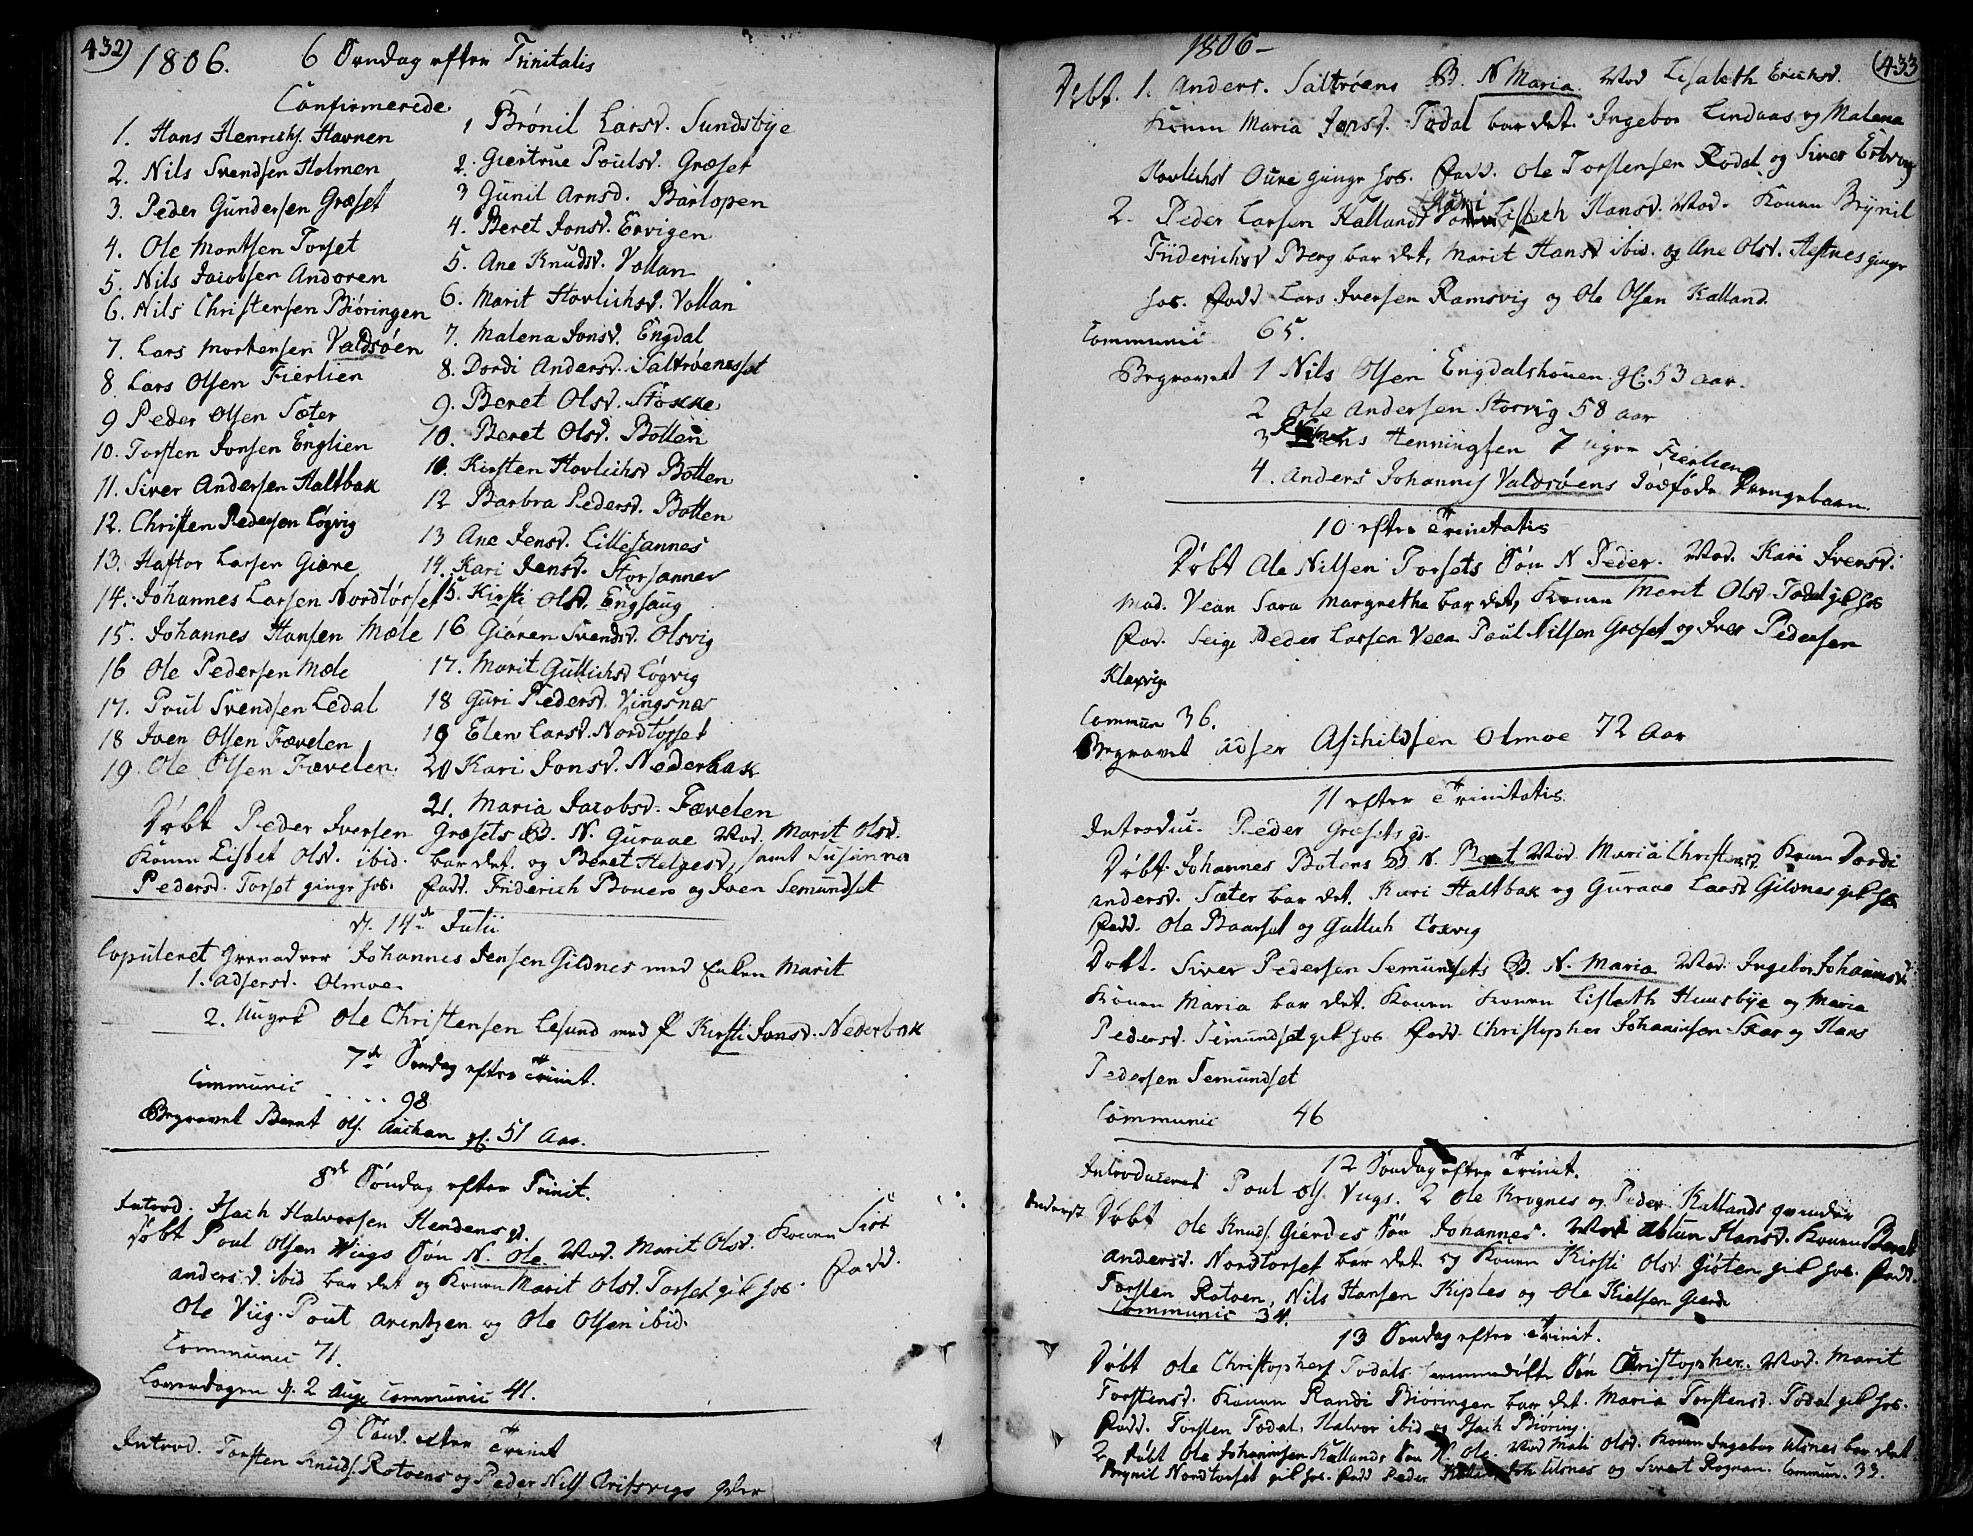 432)
1806. 6 Søndag efter Trinitatis
Confirmerede
1. Hans Henrichs. Havnen
2. Nils Svendsen Holmen
3. Peder Gundersen Græset
4. Ole Montsen Torset
5. Nils Jacobsen Andoren
6. Nils Christensen Biøringen
7. Lars Mortensen Valdsøen
8 Lars Olsen Fierlien
9 Peder Olsen Sæter
10. Torsten Jonsen Englien
11. Siver Andersen Haltbak
12. Christen Pedersen Løgvig
13. Haftor Larsen Giære
14. Johannes Larsen Nordtorset
15. Johannes Hansen Mæle
16 Ole Pedersen Mæle
17. Poul Svendsen Ledal
18 Iven Olsen Fævelen
19. Ole Olsen Fævelen
1 Brønil Larsd. Sundsbye
2. Giertrue Poulsd. Græset
3 Gunil Arnsd. Bårlopen
4. Beret Jonsd. Ervigen
5. Ane Knudsd. Vollan
6. Marit Hovlichsd. Vollan
7. Malena Jonsd. Engdal
8. Dordi Andersd. Saltrøenesset
9. Beret Olsd. Stokke
10. Beret Olsd. Botten
11. Kirsten Hovlichsd Botten
12 Barbra Pedersd. Botten
13 Ane Jensd. Lillesannes
14. Kari Jensd. Storsannes
15. Kirsti Olsd. Engsaug
16 Giøren Svendsd. Olsvig
17. Marit Gullichsd Løgvig
18 Guri Pedersd. Vingsnæs
19 Elen Larsd. Nordtorset
20 Kari Jonsd. Nederbak
21. Maria Jacobsd. Fævelen
Døbt Peder Iversen Græsets B. N. Guraae Mod. Marit Olsd.
Konen Lisbet Olsd. ibid. bar det. og Beret Helgesd, samt Susanna
Pedersd. Torset ginge hos. Fadd. Friderich Bouer og Iven Semundset
d. 14de Julii
Copuleret Grenadeer Johannes Jensen Gildnes med Enken Marit
1. Adsersd. Olmoe.
2. Ungk. Ole Christensen Lesund med P. Kirsti Jonsd. Nederbak
7de Søndag efter Trinit.
Communic ..... 98
Begravet Bernt Ols. Aachan gl. 51 Aar.
8de Søndag efter Trinit.
Introd. Isach Halvorsen Hendens g.
Døbt Poul Olsen Viigs Søn N. Ole Mod. Marit Olsd. Konen Siri
Andersd. ibid bar det og Konen Marit Olsd. Torset gik hos. Fadd.
Ole Viig. Poul Arentzen og Ole Olsen ibid.
Communic 71.
Løverdagen d. 2 Aug. Communic 41.
9 Sønd. efter Trinit
Introd. Torsten Knuds. Rotøens og Peder Nils. Aritsvigs
1806-
(433
Døbt. 1. Anders. Saltrøens B. N Maria Mod Lisabeth Erichsd.
Konen Maria Jonsd. Todal bar det. Ingebor Lindaas og Malena
Hovlichsd Oure ginge hos. Fadd. Ole Torstensen Rodal og Siver
2. Peder Larsen Kallands Lisbeth Hansd. Mod. Konen Brynil
Friderichsd Berg bar det, Marit Hansd ibid. og Ane Olsd. Hestnes ginge
hos. Fadd Lars Iversen Ramsvig og Ole Olsen Kalland.
Communic 65.
Begravet 1 Nils Olsen Engdalshouen gl. 53 aar.
2 Ole Andersen Storvig 58 aar
3 Henningsen 7 uger Fierlien
4. Anders Johannis Valdsøens dødføde Drengebarn.
10 efter Trinitatis
Døbt Ole Nilsen Torsets Søn N Peder. Mod. Kari Iversd.
Mad. Vean Sara Margrethe bar det, Konen Marit Olsd Todal gik hos
Fad. Seigr Peder Larsen Veen Poul Nilsen Græset og Iver Pedersen
Klaxvig
Commun 36.
Begravet Adser Aschildsen Olmoe 72 Aar
11 efter Trinitatis
Introduc. Peder Græsets g.
Døbt Johannes Botens B N. Beret Mod Maria Christensd. Konen Dordi
Andersd. Sæter bar det. Kari Haltbak og Guraae Larsd Gildnes gik hos
Fadd. Ole Baarset og Gullich Løxvig
Døbt. Siver Pedersen Semundsets B. N. Maria Mod. Ingebor Johannesd.
Konen Maria bar det. Konen Konen Lisbeth Huusbye og Maria
Pedersd. Semundset gik hos Fadd. Christopher Johannsen Skar og Hans
Pedersen Semundset
Communic 46
12 Søndag efter Trinit.
Introduceret Poul Ols. Vugs. 2 Ole Krognes og Peder Kallands qvinder
Døbt Ole Knuds. Gierdes Søn Johannes. Mod Hansd. Konen Beret
Andersd. Nordtorset bar det og Konen Kirsti Olsd Giøten gik hos. Fadd.
Torsten Rotøen, Nils Hansen Kiples og Ole Kielsen Gierde
Communic 34.
13 Søndag efter Trinit.
Døbt Ole Christophers Todals hiemmedøbte Søn Christopher. Mod. Marit
Torstensd. Konen Randi Biøringen bar det. Maria Torstensd. Todal gik hos.
Fadd. Torsten Todal, Halvor ibid og Isach Biøring.
2. Døbt Ole Johannsen Kallands Søn N. Ole. Mod Mali Olsd. Konen Ingebor Ulsnes bar det
Brynil Nordtorset gik hos. Fadd Peder Ulsnes og Sivert Rognan. Commun. 33.